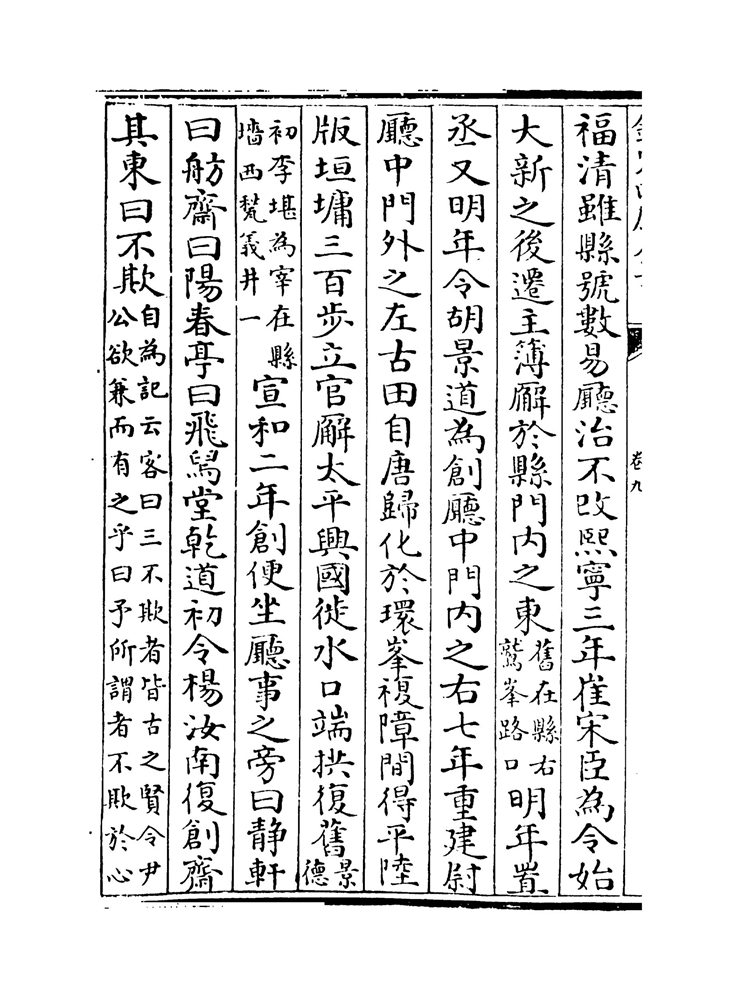 福清雖縣號數易廳治不改熙寧三年崔宋臣為令始
大新之後遷主簿廨於縣門内之東舊在縣右鷲峯路口明年置
丞又明年令胡景道為創廳中門内之右七年重建尉
廳中門外之左古田自唐歸化於環峯複障間得平陸
版垣墉三百步立官廨太平興國徙水口端拱復舊景德
初李堪為宰在縣墻西甃義井一宣和二年創便坐廳事之旁曰静軒
曰舫齋曰陽春亭曰飛舄堂乾道初令楊汝南復創齋
其東曰不欺自為記云客曰三不欺者皆古之賢令尹公欲兼而有之乎曰予所謂者不欺於心
卷九